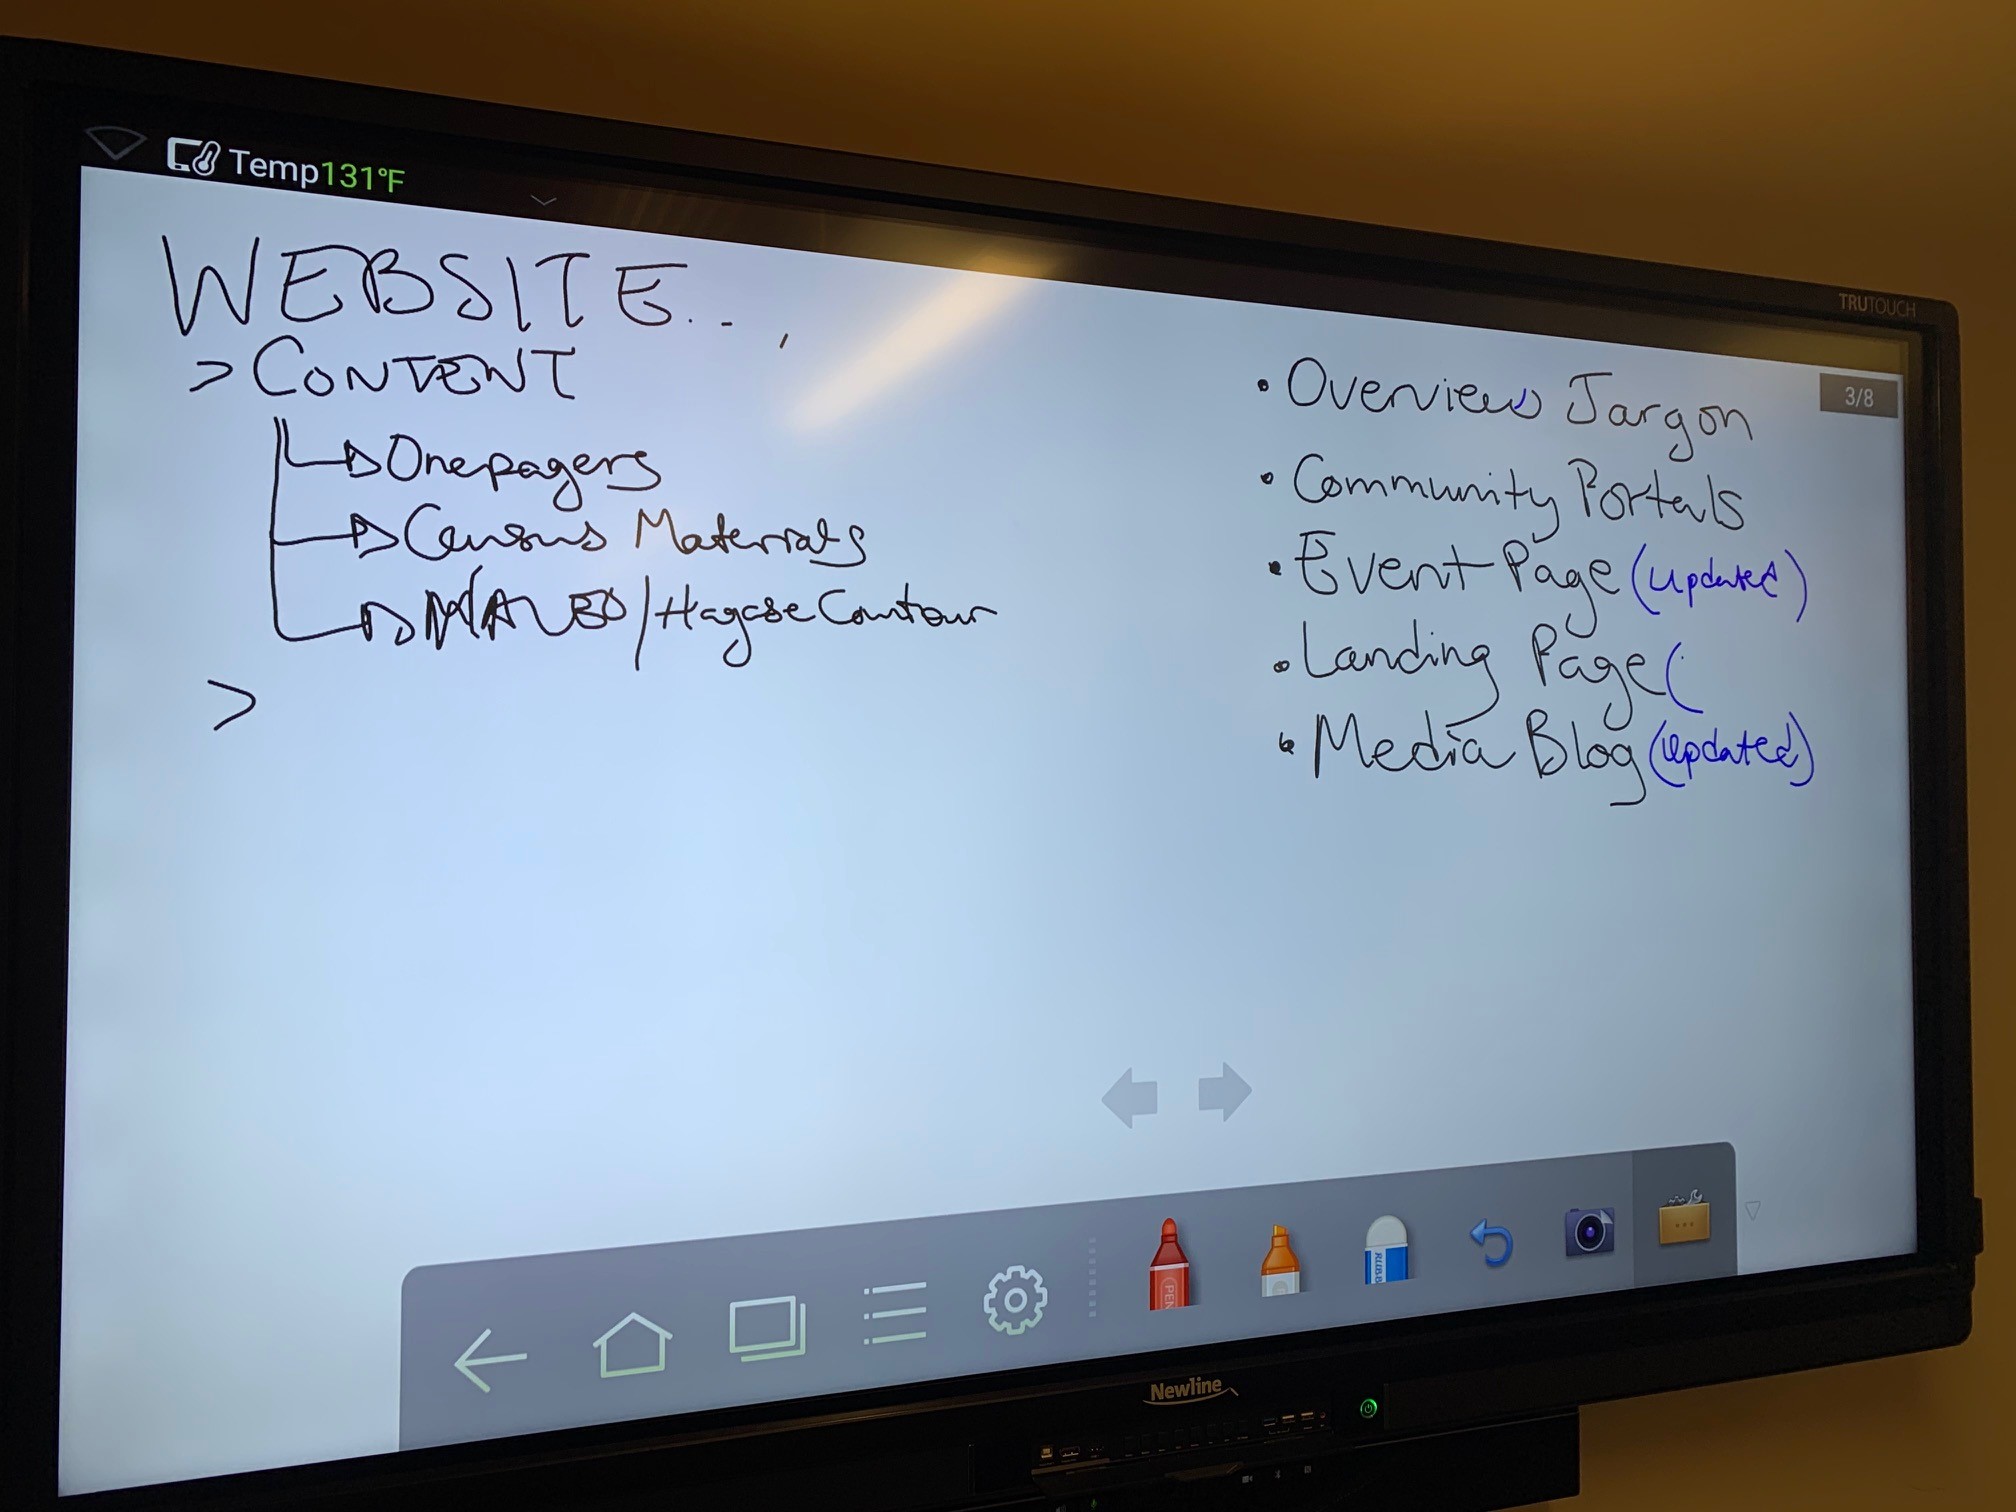 Temp131°F
WEBSITE...
> CONTENT
Onepagers
Census Materials
NALEO/Hagase Contour
>
3/8
• Overview Jargon
• Community Portals
• Event Page (updated)
• Landing Page (
• Media Blog (updated)
TRUTOUCH
PEN
Newline